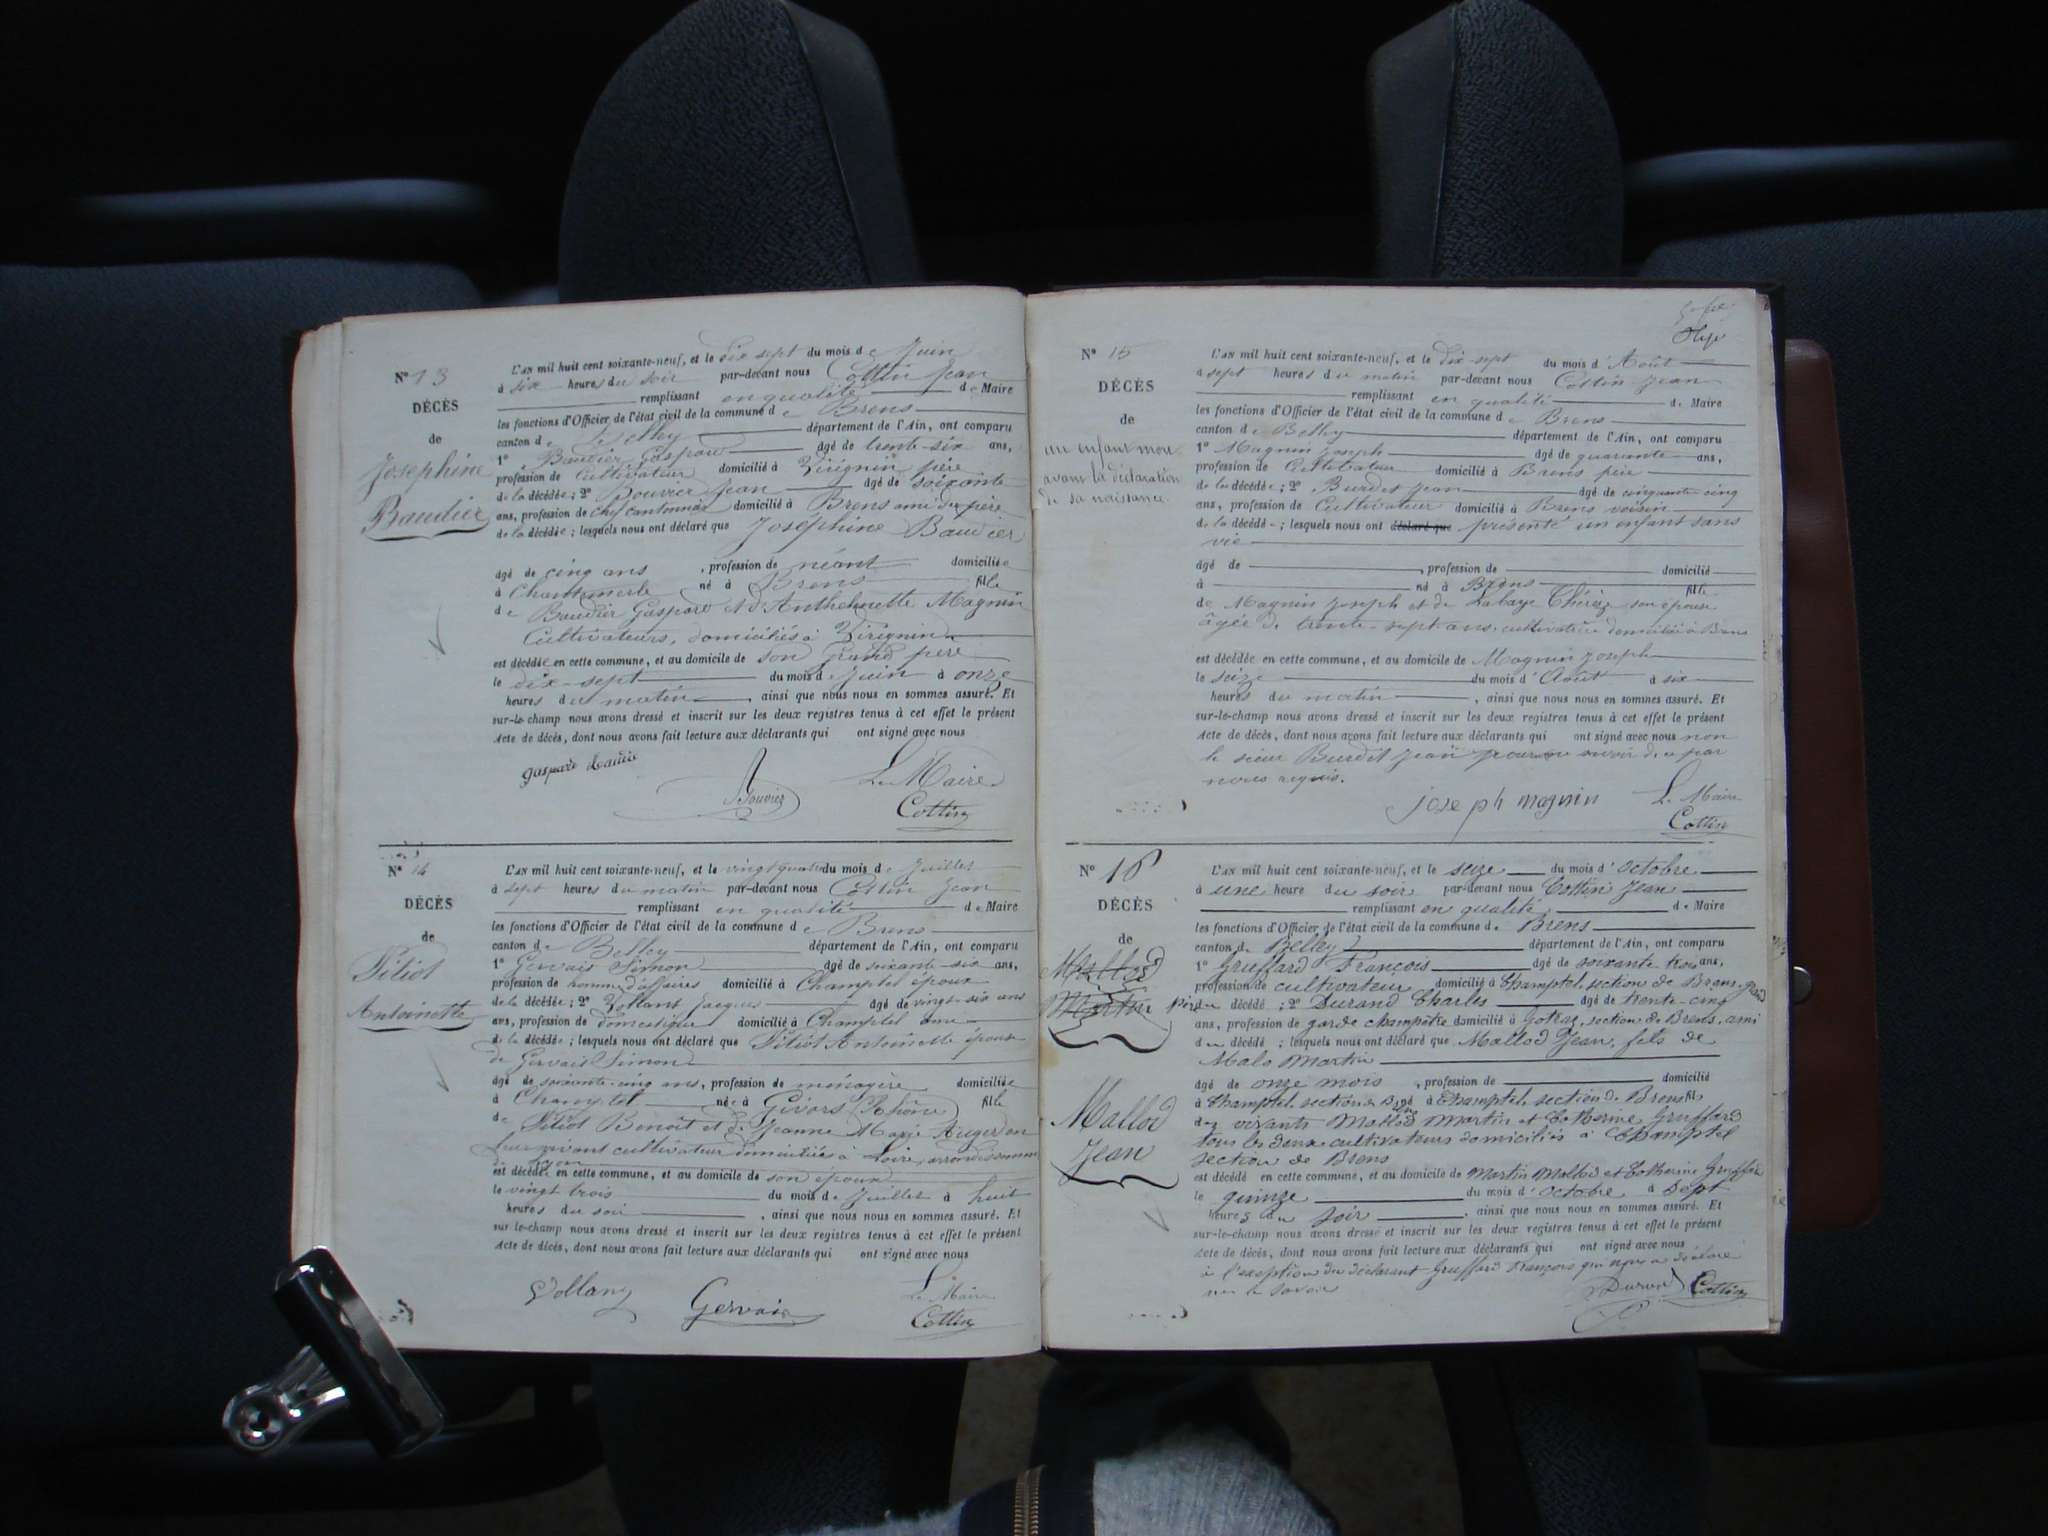 N° 13
DÉCÈS
de
Josephine
Baudier
L'AN mil huit cent soixante-neuf, et le dix sept du mois de Juin
à six heures du soir par-devant nous Cottin Jean
remplissant en qualité de Maire
les fonctions d'Officier de l'état civil de la commune de Brens
canton de Belley département de l'Ain, ont comparu
1° Baudier Gaspard âgé de trente-six ans,
profession de Cultivateur domicilié à Virignin père
de la décédée ; 2° Bouvier Jean âgé de soixante
ans, profession de chef cantonnier domicilié à Brens ami du père
de la décédée ; lesquels nous ont déclaré que Josephine Baudier
âgé de cinq ans , profession de néant domiciliée
à Chantemerle né à Brens fille
de Baudier Gaspard et d'Anthelmette Magnin
Cultivateurs, domiciliés à Virignin
est décédée en cette commune, et au domicile de son Grand père
le dix-sept du mois de Juin à onze
heures du matin , ainsi que nous nous en sommes assuré. Et
sur-le-champ nous avons dressé et inscrit sur les deux registres tenus à cet effet le présent
Acte de décès, dont nous avons fait lecture aux déclarants qui ont signé avec nous
gaspard Baudie
Bouvier
Le Maire
Cottin
N° 14
DÉCÈS
de
Pitiot
Antoinette
L'AN mil huit cent soixante-neuf, et le vingt quatre du mois de Juillet
à sept heures du matin par-devant nous Cottin Jean
remplissant en qualité de Maire
les fonctions d'Officier de l'état civil de la commune de Brens
canton de Belley département de l'Ain, ont comparu
1° Gervais Simon âgé de soixante-six ans,
profession de homme d'affaires domicilié à Champtel époux
de la décédée ; 2° Vollant Jacques âgé de vingt-six ans
ans, profession de domestique domicilié à Champtel ami
de la décédée ; lesquels nous ont déclaré que Pitiot Antoinette épouse
de Gervais Simon
âgé de soixante-cinq ans, profession de ménagère domiciliée
à Champtel née à Givors (Rhône) fille
de Pitiot Benoît et de Jeanne Marie
leur vivant cultivateur domiciliés à Loire, arrondissement
de Lyon
est décédée en cette commune, et au domicile de son époux
le vingt trois du mois de Juillet à huit
heures du soir , ainsi que nous nous en sommes assuré. Et
sur-le-champ nous avons dressé et inscrit sur les deux registres tenus à cet effet le présent
Acte de décès, dont nous avons fait lecture aux déclarants qui ont signé avec nous
Vollant
Gervais
Le Maire
Cottin
N° 15
DÉCÈS
de
un enfant mort
avant la déclaration
de sa naissance
L'AN mil huit cent soixante-neuf, et le dix-sept du mois d'Août
à sept heures du matin par-devant nous Cottin Jean
remplissant en qualité de Maire
les fonctions d'Officier de l'état civil de la commune de Brens
canton de Belley département de l'Ain, ont comparu
1° Magnin Joseph âgé de quarante ans,
profession de Cultivateur domicilié à Brens père
de la décédée ; 2° Burdet Jean âgé de cinquante-cinq
ans, profession de Cultivateur domicilié à Brens voisin
de la décédée ; lesquels nous ont déclaré que présenté un enfant sans
vie
âgé de , profession de domicilié
à né à Brens fille
de Magnin Joseph et de Labaye Thérèze son épouse
âgée de trente-sept ans, cultivatrice domiciliée à Brens
est décédée en cette commune, et au domicile de Magnin Joseph
le seize du mois d'Août à six
heures du matin , ainsi que nous nous en sommes assuré. Et
sur-le-champ nous avons dressé et inscrit sur les deux registres tenus à cet effet le présent
Acte de décès, dont nous avons fait lecture aux déclarants qui ont signé avec nous non
le sieur Burdet Jean pour ne savoir de ce par
nous requis.
joseph magnin
Le Maire
Cottin
N° 16
DÉCÈS
de
Mallod
Martin
Mallod
Jean
L'AN mil huit cent soixante-neuf, et le seize du mois d'Octobre
à une heure du soir par-devant nous Cottin Jean
remplissant en qualité de Maire
les fonctions d'Officier de l'état civil de la commune de Brens
canton de Belley département de l'Ain, ont comparu
1° Gruffard François âgé de soixante-trois ans,
profession de cultivateur domicilié à Champtel, section de Brens, grand
père du décédé ; 2° Durand Charles âgé de trente-cinq
ans, profession de garde champêtre domicilié à , section de Brens, ami
du décédé ; lesquels nous ont déclaré que Mallod Jean, fils de
Malo Martin
âgé de onze mois , profession de domicilié
à Champtel, section de né à Champtel, section de Brens fils
des vivants Mallod Martin et Catherine Gruffard
tous les deux cultivateurs domiciliés à Champtel
section de Brens
est décédé en cette commune, et au domicile de Martin Mallod et Catherine Gruffard
le quinze du mois d'Octobre à Sept
heures du soir , ainsi que nous nous en sommes assuré. Et
sur-le-champ nous avons dressé et inscrit sur les deux registres tenus à cet effet le présent
Acte de décès, dont nous avons fait lecture aux déclarants qui ont signé avec nous
à l'exception du déclarant Gruffard François qui nous a déclaré
ne le savoir
Durand
Cottin